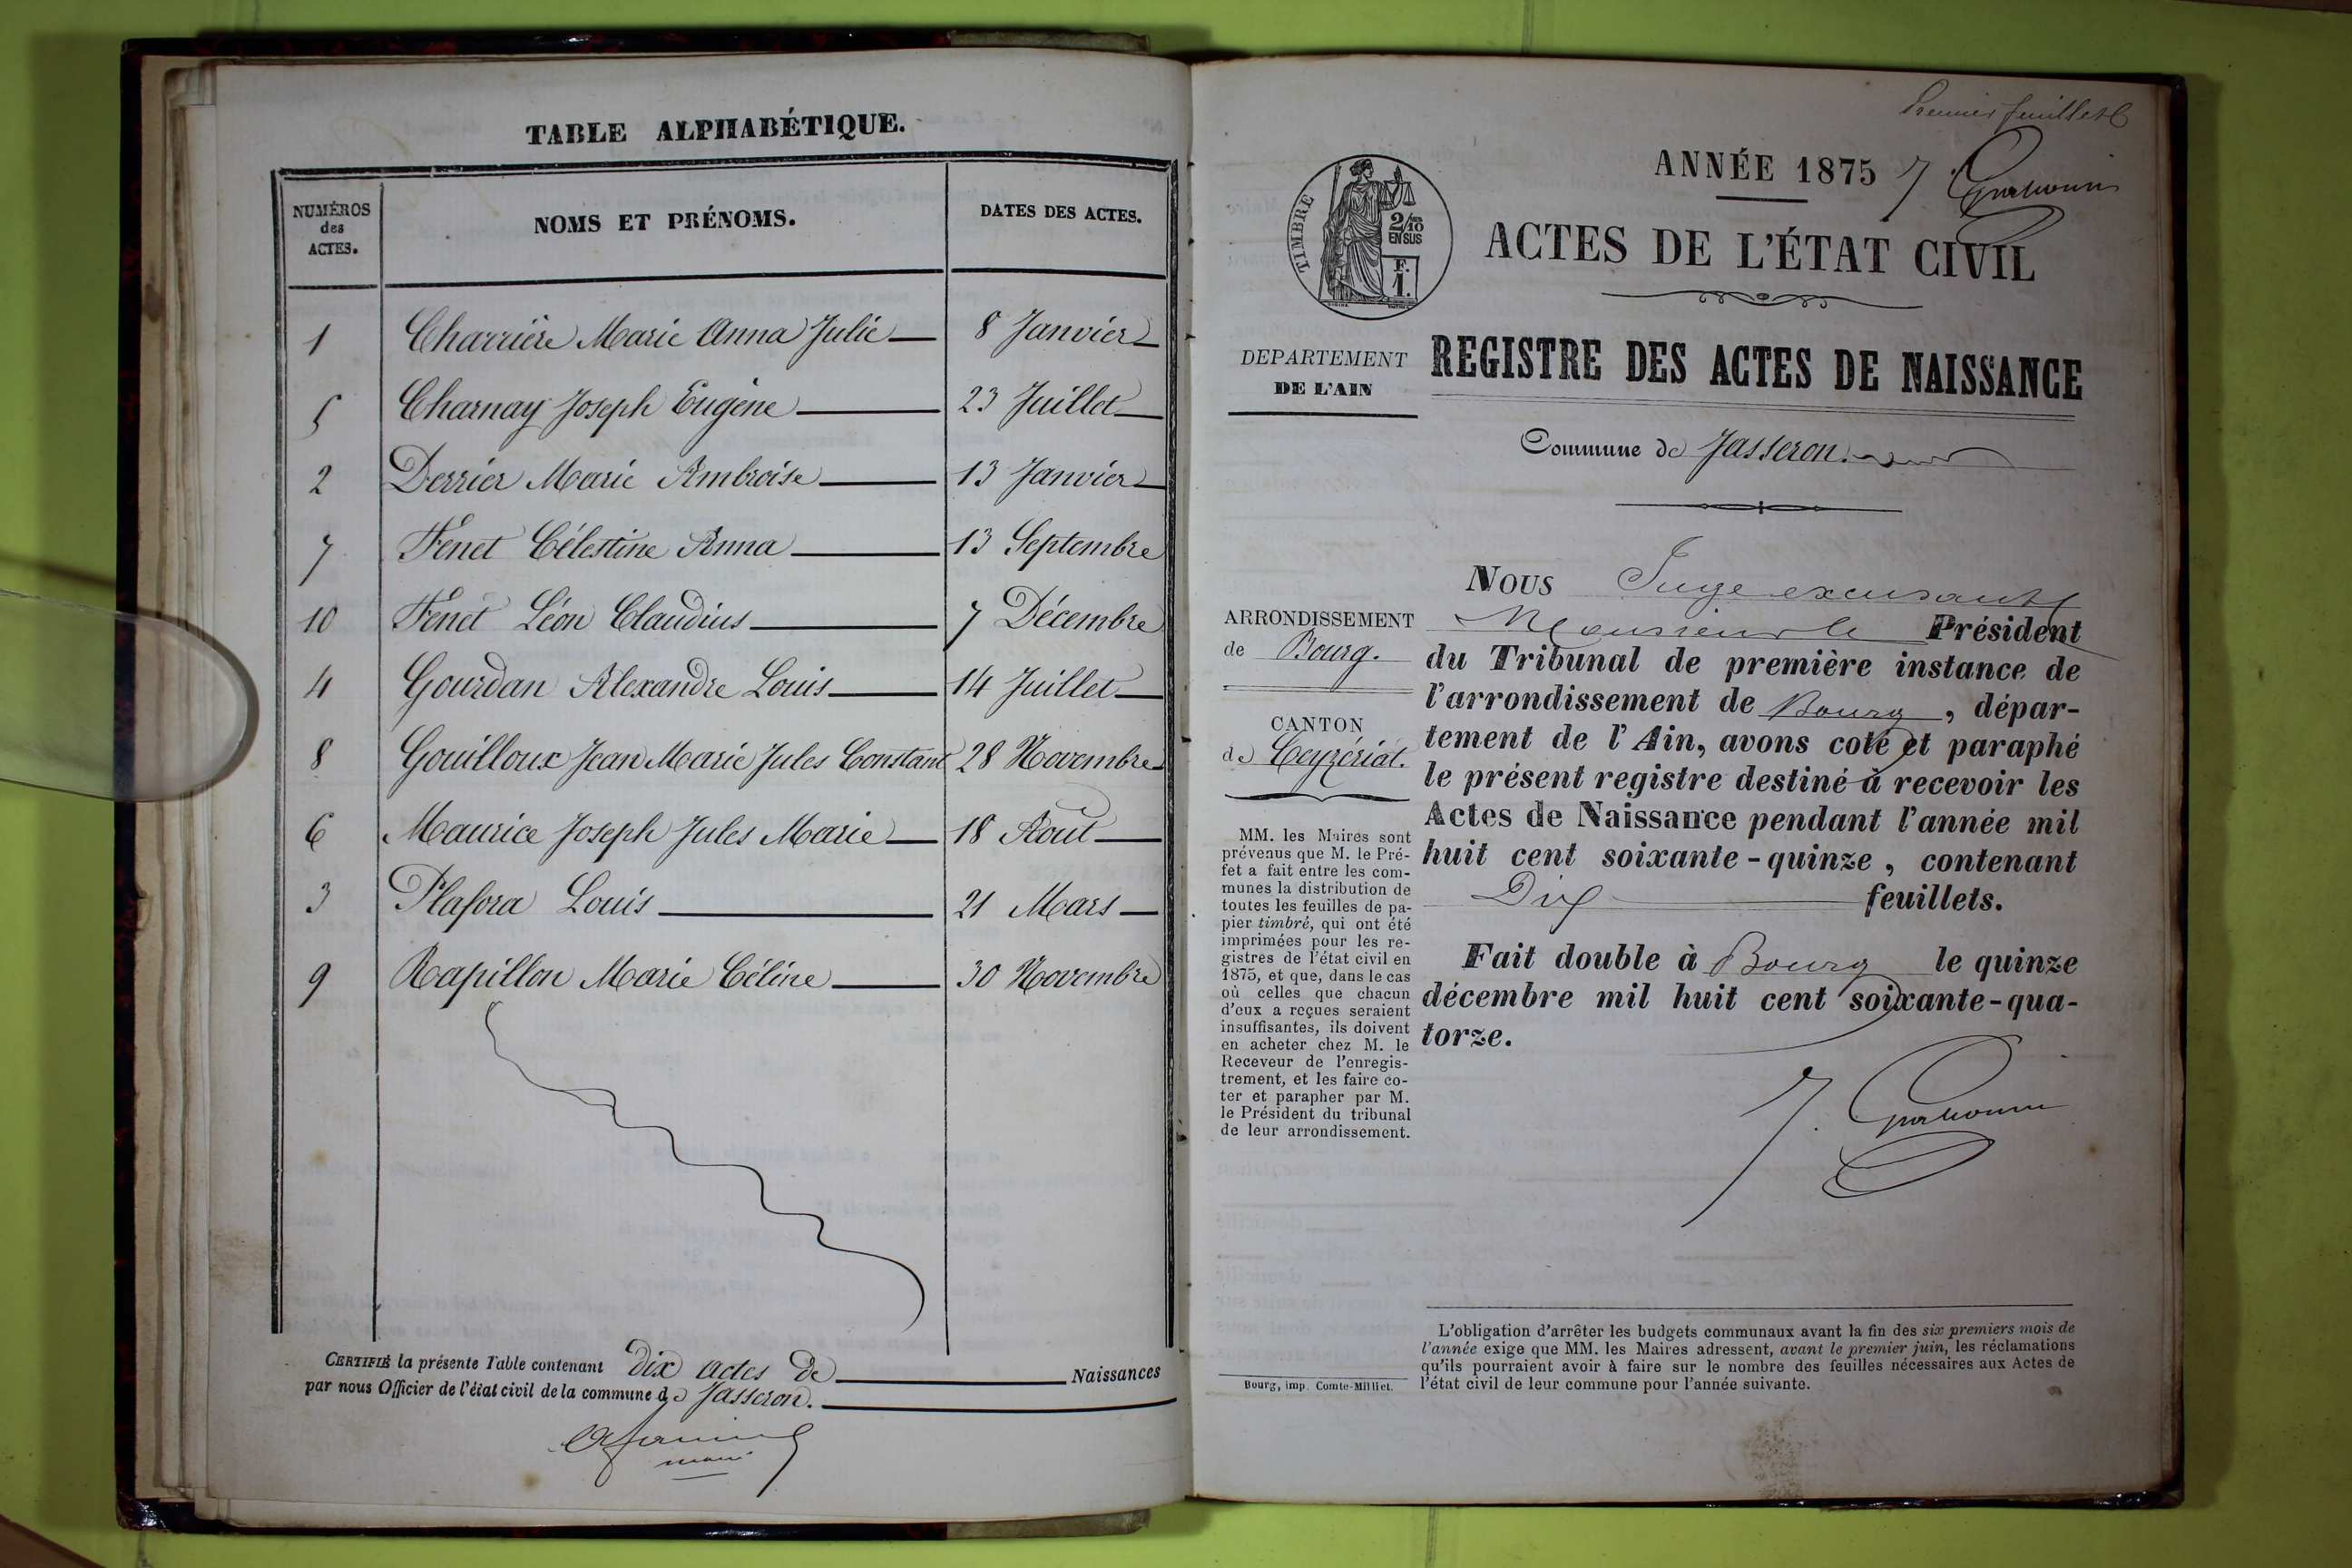 TABLE ALPHABÉTIQUE.
NUMÉROS des ACTES.
NOMS ET PRÉNOMS.
DATES DES ACTES.
1 Charrière Marie Anna Julie 8 Janvier
5 Charnay Joseph Eugène 23 Juillet
2 Derrier Marie Ambroise 13 Janvier
7 Fenet Célestine Anna 13 Septembre
10 Fenet Léon Claudius 7 Décembre
4 Gourdan Alexandre Louis 14 Juillet
8 Gouilloux Jean Marie Jules Constant 28 Novembre
6 Maurice Joseph Jules Marie 18 Août
3 Plafora Louis 21 Mars
9 Rapillon Marie Céline 30 Novembre
CERTIFIÉ la présente Table contenant dix actes de Naissances
par nous Officier de l'état civil de la commune de Jasseron.
maire
Premier feuillet
ANNÉE 1875
TIMBRE
2/10
EN SUS
F.
1.
ACTES DE L'ÉTAT CIVIL
DEPARTEMENT
DE L'AIN
REGISTRE DES ACTES DE NAISSANCE
Commune de Jasseron.
ARRONDISSEMENT
de Bourg.
CANTON
de Ceyzériat.
MM. les Maires sont
prévenus que M. le Pré-
fet a fait entre les com-
munes la distribution de
toutes les feuilles de pa-
pier timbré, qui ont été
imprimées pour les re-
gistres de l'état civil en
1875, et que, dans le cas
où celles que chacun
d'eux a reçues seraient
insuffisantes, ils doivent
en acheter chez M. le
Receveur de l'enregis-
trement, et les faire co-
ter et parapher par M.
le Président du tribunal
de leur arrondissement.
Bourg, imp. Comte-Milliet.
NOUS Juge excusant
Monsieur le Président
du Tribunal de première instance de
l'arrondissement de Bourg, dépar-
tement de l'Ain, avons coté et paraphé
le présent registre destiné à recevoir les
Actes de Naissance pendant l'année mil
huit cent soixante-quinze, contenant
Dix feuillets.
Fait double à Bourg le quinze
décembre mil huit cent soixante-qua-
torze.
L'obligation d'arrêter les budgets communaux avant la fin des six premiers mois de
l'année exige que MM. les Maires adressent, avant le premier juin, les réclamations
qu'ils pourraient avoir à faire sur le nombre des feuilles nécessaires aux Actes de
l'état civil de leur commune pour l'année suivante.